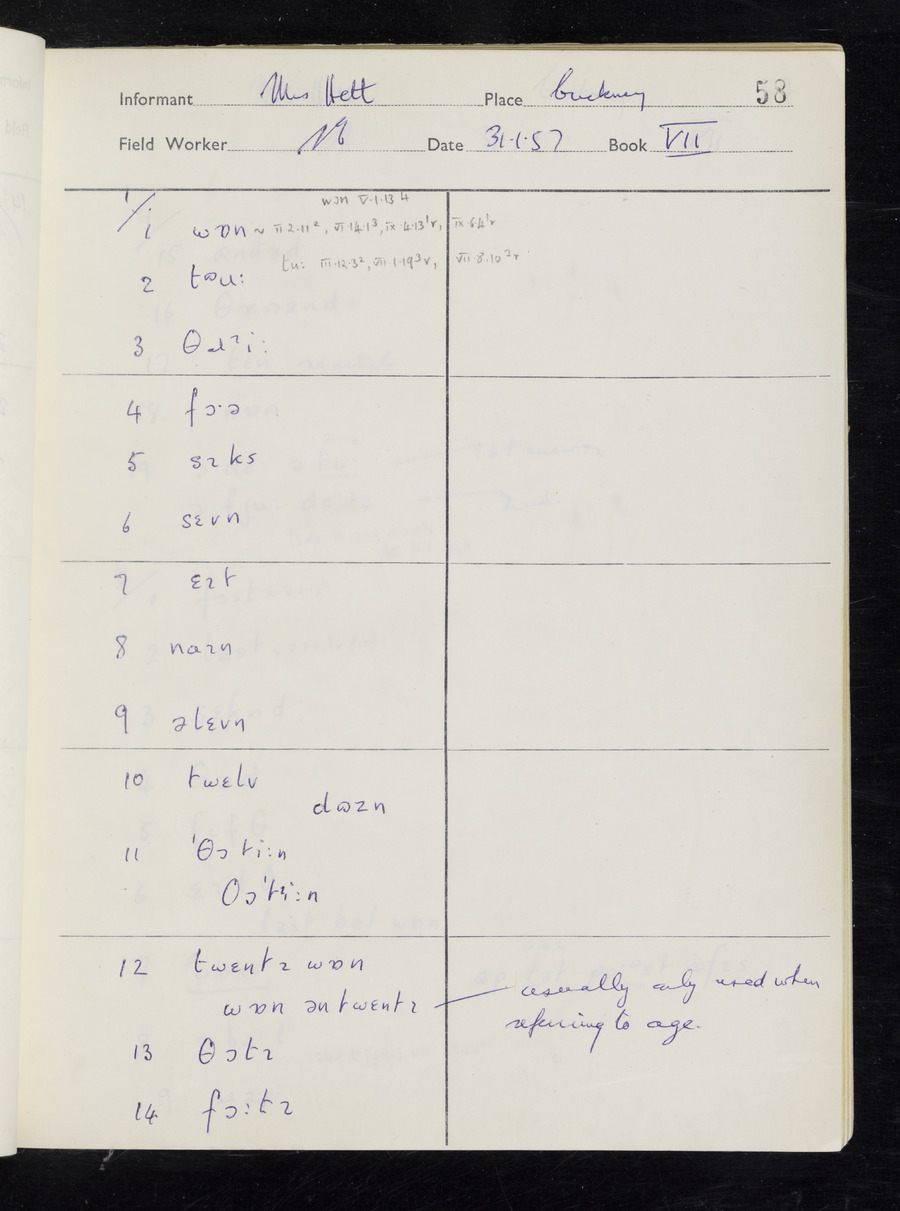 Informant Mrs Hett Place Cuckney 58
Field Worker Date 31.1.57 Book VII
wɔn V.1.13⁴
1/1 wɒn ~ II.2.11², VI.14.1³, IX.4.13¹r, IX.6.4¹r
tu: III.12.3², VII.1.19³r, VII.8.10³r
2 təu:
3 θɹᶦi:
4 fɔ·ə
5 sɪks
6 sɛvn
7 ɛɪt
8 naɪn
9 əlɛvn
10 twɛlv
dɷzn
11 ˈθɔti:n
θɔˈti:n
12 twɛntɪ wɒn
wɒn əntwɛntɪ — usually only used when
referring to age.
13 θɔtɪ
14 fɔ:tɪ